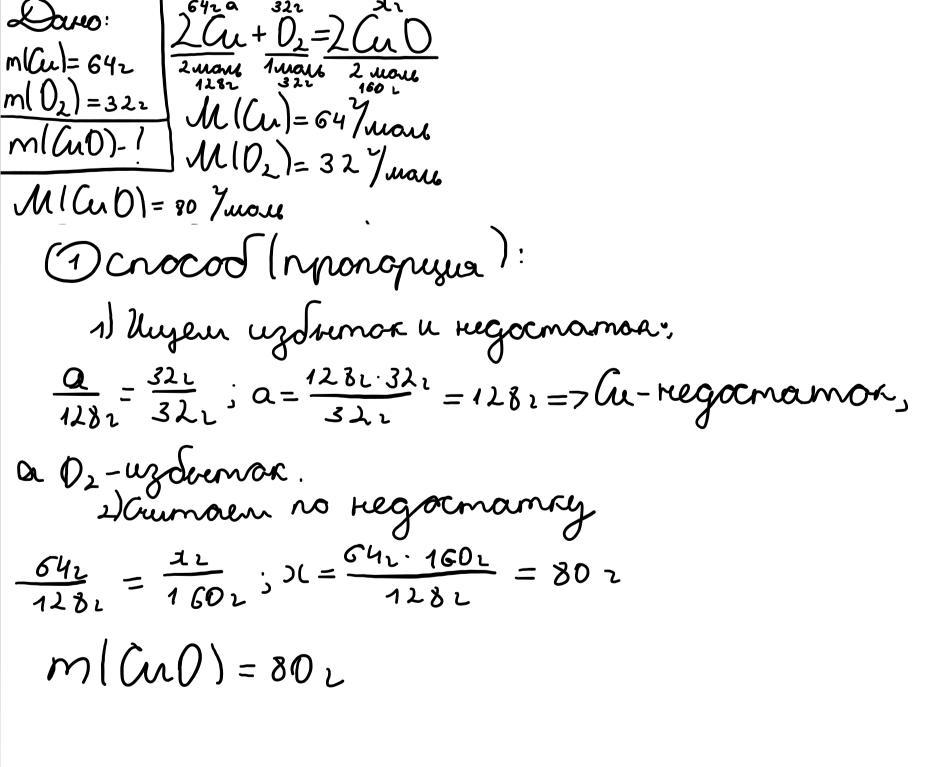 Дано:
m(Cu)=64г
m(O₂)=32г
m(CuO)-!
64г а 32г xг
2Cu + O₂ = 2CuO
2моль 1моль 2 моль
128г 32г 160г
M(Cu)=64 г/моль
M(O₂)=32 г/моль
M(CuO)=80 г/моль
① способ (пропорция):
1) Ищем избыток и недостаток:
а/128г = 32г/32г ; а= 128г·32г/32г =128г => Cu-недостаток,
а O₂-избыток.
2) Считаем по недостатку
64г/128г = xг/160г ; x= 64г·160г/128г = 80 г
m(CuO)=80г